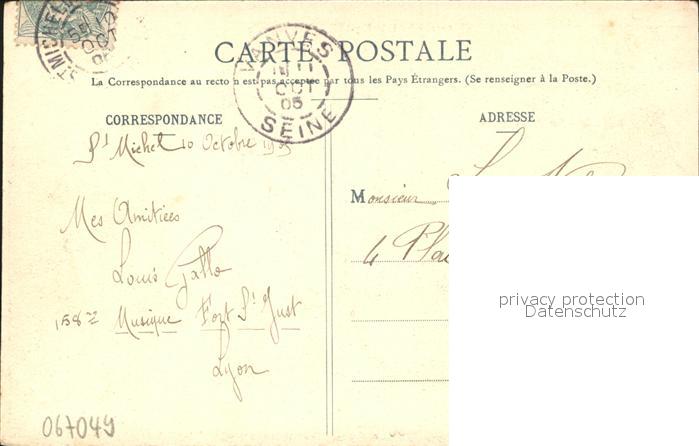 CARTE POSTALE
La Correspondance au recto n'est pas acceptée par tous les Pays Étrangers. (Se renseigner à la Poste.)
VANVES
11
OCT
05
SEINE
CORRESPONDANCE
St Michel 10 Octobre
Mes Amitiées
Louis Gallo
158e Musique Fort St Just
Lyon
067049
ADRESSE
Monsieur
4 Pla
privacy protection
Datenschutz